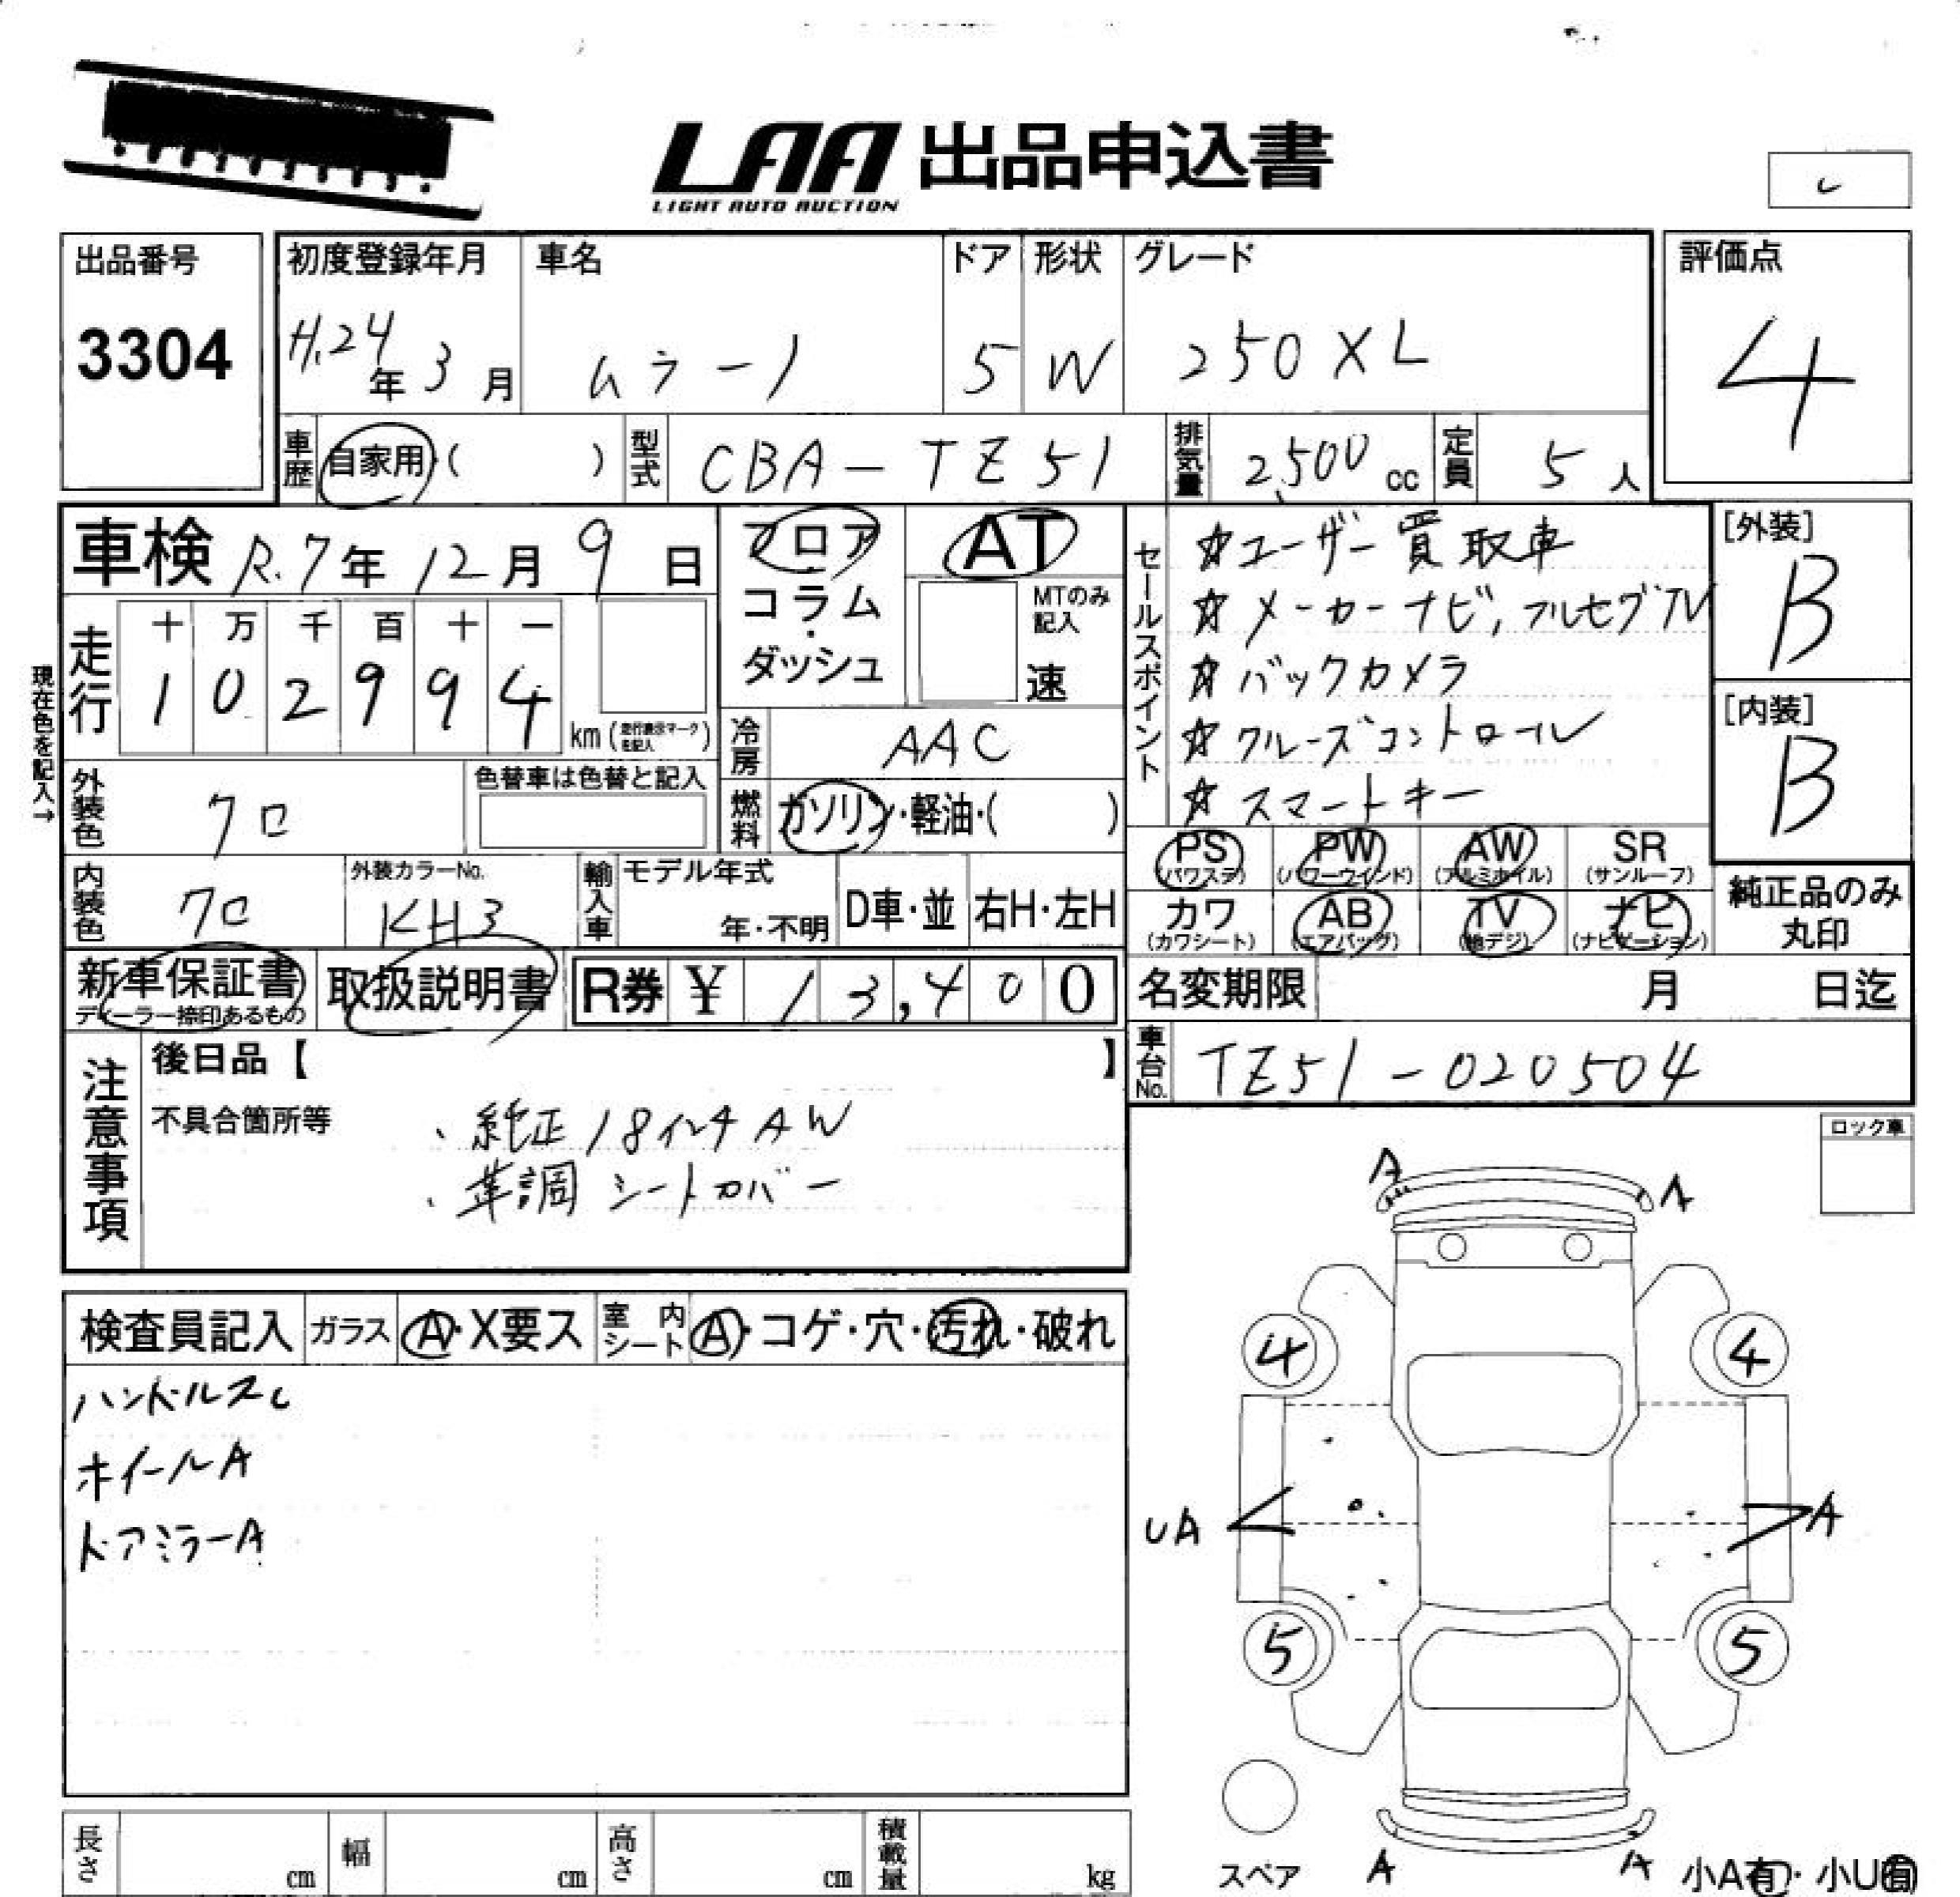 LAA 出品申込書
LIGHT AUTO AUCTION
出品番号
3304
初度登録年月
H.24年3月
車名
ムラーノ
ドア
5
形状
W
グレード
250XL
評価点
4
車歴 自家用・( )
型式 CBA-TZ51
排気量 2,500cc
定員 5人
車検 R.7年12月9日
フロア・コラム・ダッシュ
AT
MTのみ記入
速
セールスポイント
☆ユーザー買取車
☆メーカーナビ,フルセグTV
☆バックカメラ
☆クルーズコントロール
☆スマートキー
[外装]
B
[内装]
B
現在色を記入→
走行
十 万 千 百 十 一
1 0 2 9 9 4
km(走行表示マークを記入)
冷房 AAC
燃料 ガソリン・軽油・( )
外装色 クロ
色替車は色替と記入
内装色 クロ
外装カラーNo.
KH3
輸入車
モデル年式
年・不明
D車・並
右H・左H
PS (パワステ)
PW (パワーウインド)
AW (アルミホイル)
SR (サンルーフ)
カワ (カワシート)
AB (エアバッグ)
TV (地デジ)
ナビ (ナビゲーション)
純正品のみ
丸印
新車保証書
ディーラー捺印あるもの
取扱説明書
R券 ¥ 13,400
名変期限 月 日迄
車台No. TZ51-020504
注意事項
後日品【 】
不具合箇所等
・純正18インチAW
・革調シートカバー
ロック車
検査員記入
ガラス A・X要ス
室内シート A・コゲ・穴・汚れ・破れ
ハンドルスレ
ホイールA
ドアミラーA
A A
4 4
UA A
5 5
スペア
A A
小A有・小U有
長さ cm
幅 cm
高さ cm
積載量 kg